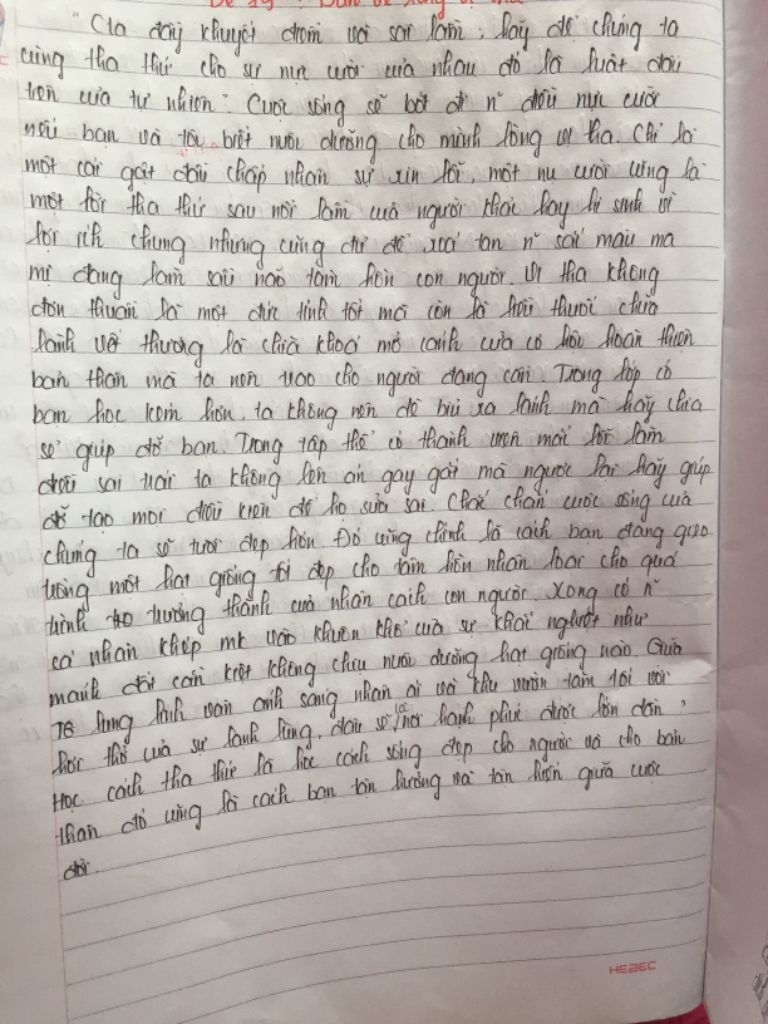 "Cta đầy khuyết điểm và sai lầm, hãy để chúng ta
cùng tha thứ cho sự nực cười của nhau đó là luật đầu
tiên của tự nhiên". Cuộc sống sẽ bớt đi n~ điều nực cười
nếu bạn và tôi biết nuôi dưỡng cho mình lòng vị tha. Chỉ là
một cái gật đầu chấp nhận sự xin lỗi, một nụ cười cũng là
một lời tha thứ sau lỗi lầm của người khác hay hi sinh vì
lợi ích chung nhưng cũng đủ để xoá tan n~ sắc màu mà
mị đang làm sầu não tâm hồn con người. Vị tha không
đơn thuần là một đức tính tốt mà còn là liều thuốc chữa
lành vết thương là chìa khoá mở cánh cửa cơ hội hoàn thiện
bản thân mà ta nên trao cho người đang cần. Trong lớp có
bạn học kém hơn, ta không nên dè bỉu xa lánh mà hãy chia
sẻ giúp đỡ bạn. Trong tập thể có thành viên mắc lỗi lầm
điều sai trái ta không lên án gay gắt mà ngược lại hãy giúp
đỡ tạo mọi điều kiện để họ sửa sai. Chắc chắn cuộc sống của
chúng ta sẽ tươi đẹp hơn. Đó cũng chính là cách bạn đang gieo
trồng một hạt giống tốt đẹp cho tâm hồn nhân loại cho quá
trình trưởng thành của nhân cách con người. Xong có n~
cá nhân khép mk vào khuôn khổ của sự khắc nghiệt như
mảnh đất cằn kiệt không chịu nuôi dưỡng hạt giống nào. Giữa
lung linh vạn ánh sáng nhân ái và khu vườn tăm tối với
hơi thở của sự lạnh lùng, đâu sẽ là nơi hạnh phúc được lớn dần,
Học cách tha thứ là học cách sống đẹp cho người và cho bản
thân đó cũng là cách bạn tận hưởng và tận hiến giữa cuộc
đời.
HEBEC